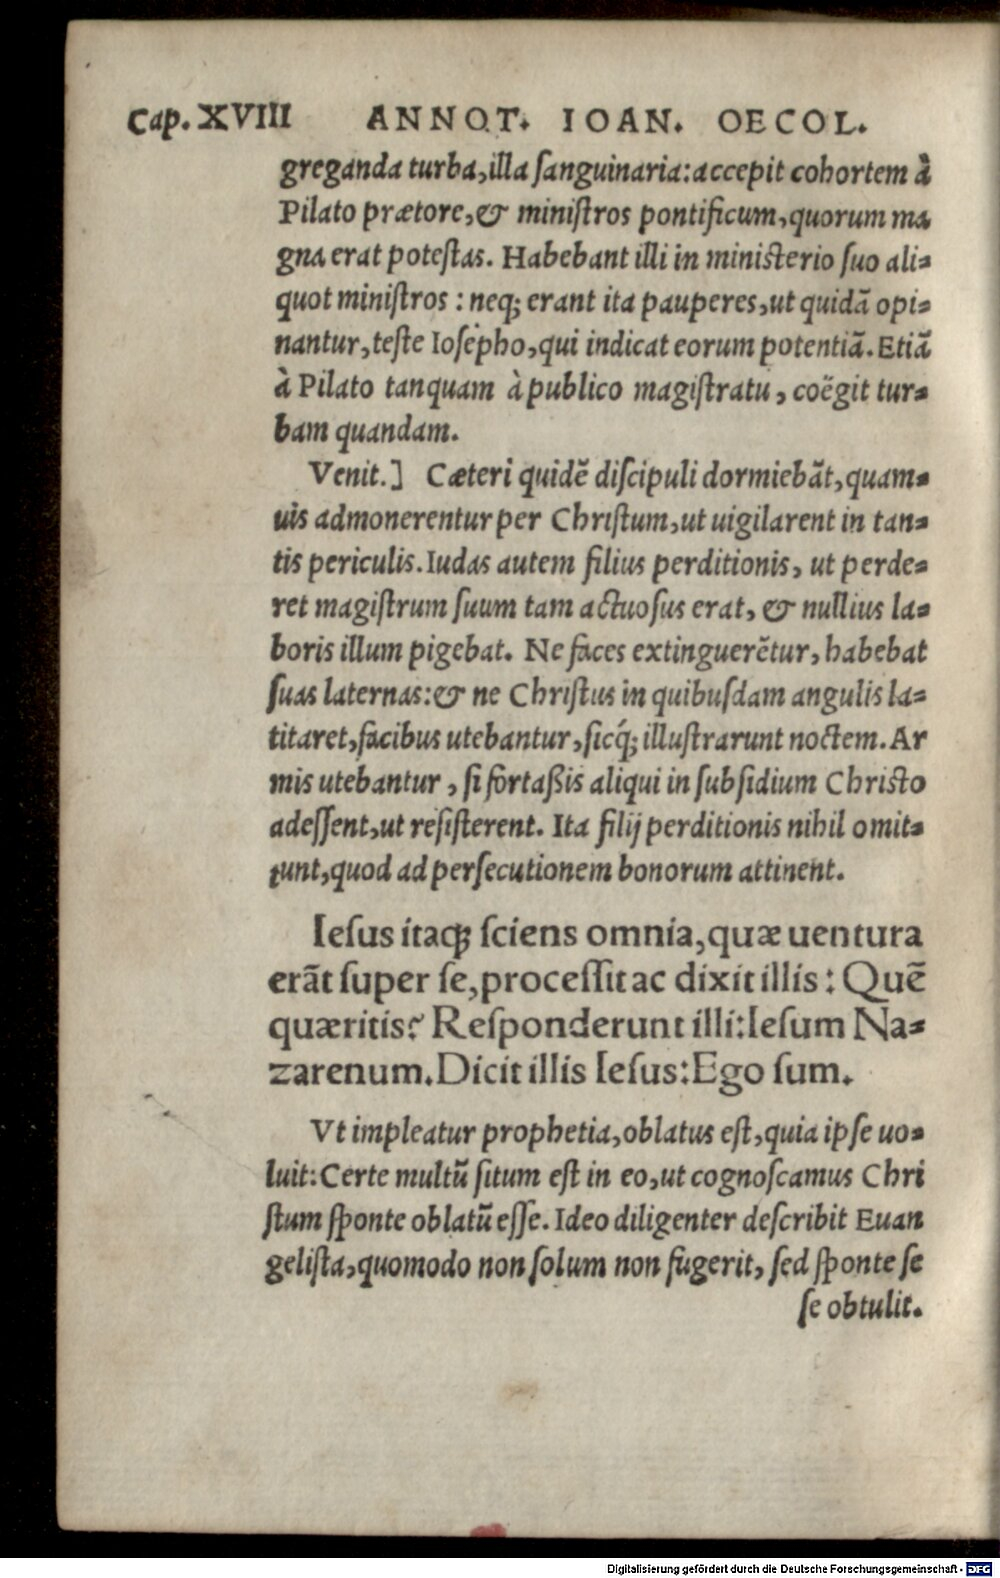 Cap. XVIII ANNOT. IOAN. OECOL.
greganda turba,illa ſanguinaria:accepit cohortem à
Pilato prætore,& miniſtros pontificum,quorum ma
gna erat poteſtas. Habebant illi in miniſterio ſuo ali-
quot miniſtros : neq; erant ita pauperes,ut quidã opi-
nantur,teſte Ioſepho,qui indicat eorum potentiã. Etiã
à Pilato tanquam à publico magiſtratu, coëgit tur-
bam quandam.
Venit.] Cæteri quidẽ diſcipuli dormiebãt,quam-
uis admonerentur per Chriſtum,ut uigilarent in tan-
tis periculis. Iudas autem filius perditionis, ut perde-
ret magiſtrum ſuum tam actuoſus erat, & nullius la-
boris illum pigebat. Ne faces extinguerẽtur, habebat
ſuas laternas:& ne Chriſtus in quibuſdam angulis la-
titaret,facibus utebantur,ſicq́; illuſtrarunt noctem. Ar
mis utebantur, ſi fortaßis aliqui in ſubſidium Chriſto
adeſſent,ut reſiſterent. Ita filij perditionis nihil omit-
tunt,quod ad perſecutionem bonorum attinent.
Ieſus itaq; ſciens omnia,quæ uentura
erãt ſuper ſe,proceſſit ac dixit illis : Quẽ
quæritis? Reſponderunt illi:Ieſum Na-
zarenum.Dicit illis Ieſus:Ego ſum.
Vt impleatur prophetia,oblatus eſt,quia ipſe uo-
luit:Certe multũ ſitum eſt in eo,ut cognoſcamus Chri
ſtum ſponte oblatũ eſſe. Ideo diligenter deſcribit Euan
geliſta,quomodo non ſolum non fugerit, ſed ſponte ſe
ſe obtulit.
Digitalisierung gefördert durch die Deutsche Forschungsgemeinschaft - DFG